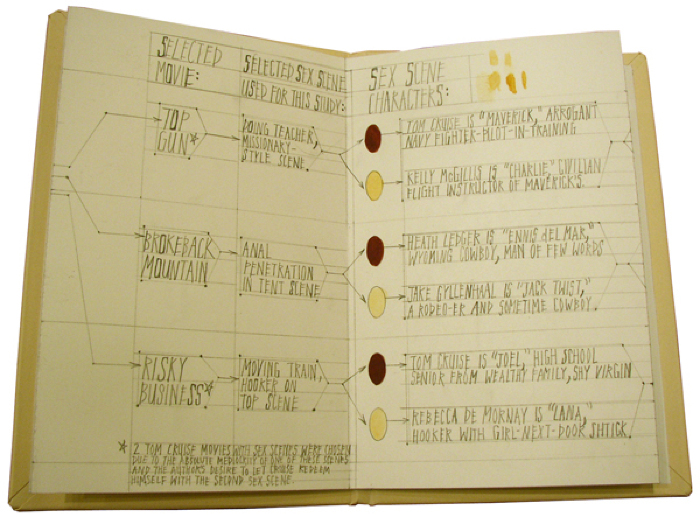 SELECTED
MOVIE:
SELECTED SEX SCENE
USED FOR THIS STUDY:
SEX SCENE
CHARACTERS:
TOP
GUN*
DOING TEACHER,
MISSIONARY-
STYLE SCENE
TOM CRUISE IS "MAVERICK," ARROGANT
NAVY FIGHTER-PILOT-IN-TRAINING
KELLY McGILLIS IS "CHARLIE," CIVILIAN
FLIGHT INSTRUCTOR OF MAVERICK'S.
BROKEBACK
MOUNTAIN
ANAL
PENETRATION
IN TENT SCENE
HEATH LEDGER IS "ENNIS DEL MAR,"
WYOMING COWBOY, MAN OF FEW WORDS
JAKE GYLLENHAAL IS "JACK TWIST,"
A RODEO-ER AND SOMETIME COWBOY.
RISKY
BUSINESS*
MOVING TRAIN,
HOOKER ON
TOP SCENE
TOM CRUISE IS "JOEL," HIGH SCHOOL
SENIOR FROM WEALTHY FAMILY, SHY VIRGIN
REBECCA DE MORNAY IS "LANA,"
HOOKER WITH GIRL-NEXT-DOOR SHTICK.
* 2 TOM CRUISE MOVIES WITH SEX SCENES WERE CHOSEN
DUE TO THE ABSOLUTE MEDIOCRITY OF ONE OF THESE SCENES
AND THE AUTHOR'S DESIRE TO LET CRUISE REDEEM
HIMSELF WITH THE SECOND SEX SCENE.